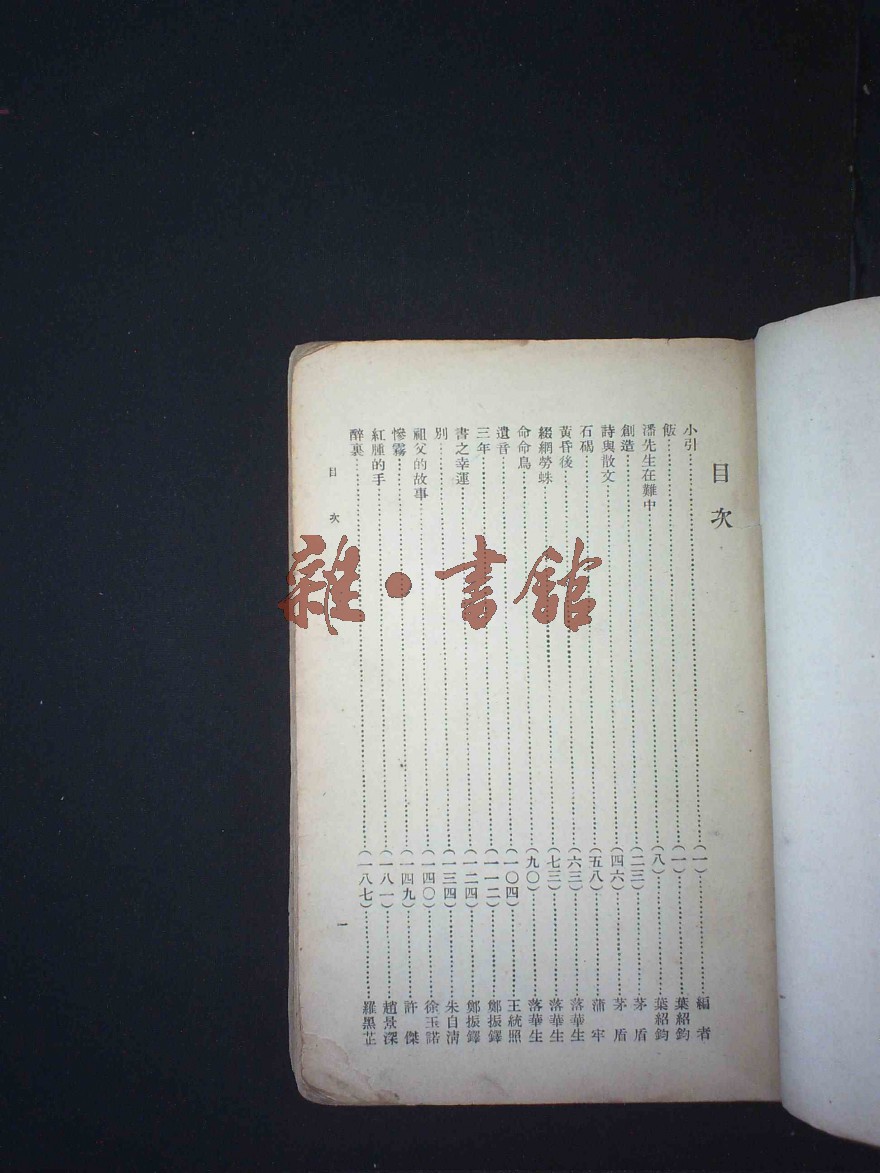 目次
小引……(一)……編者
飯……(一)……葉紹鈞
潘先生在難中……(八)……葉紹鈞
創造……(二三)……茅盾
詩與散文……(四六)……茅盾
石碣……(五八)……蒲牢
黃昏後……(六三)……落華生
綴網勞蛛……(七三)……落華生
命命鳥……(九〇)……落華生
遺音……(一〇四)……王統照
三年……(一一二)……鄭振鐸
書之幸運……(一二四)……鄭振鐸
別……(一三四)……朱自清
祖父的故事……(一四〇)……徐玉諾
慘霧……(一四九)……許傑
紅腫的手……(一八一)……趙景深
醉裏……(一八七)……羅黑芷
目次
一
雜·書館